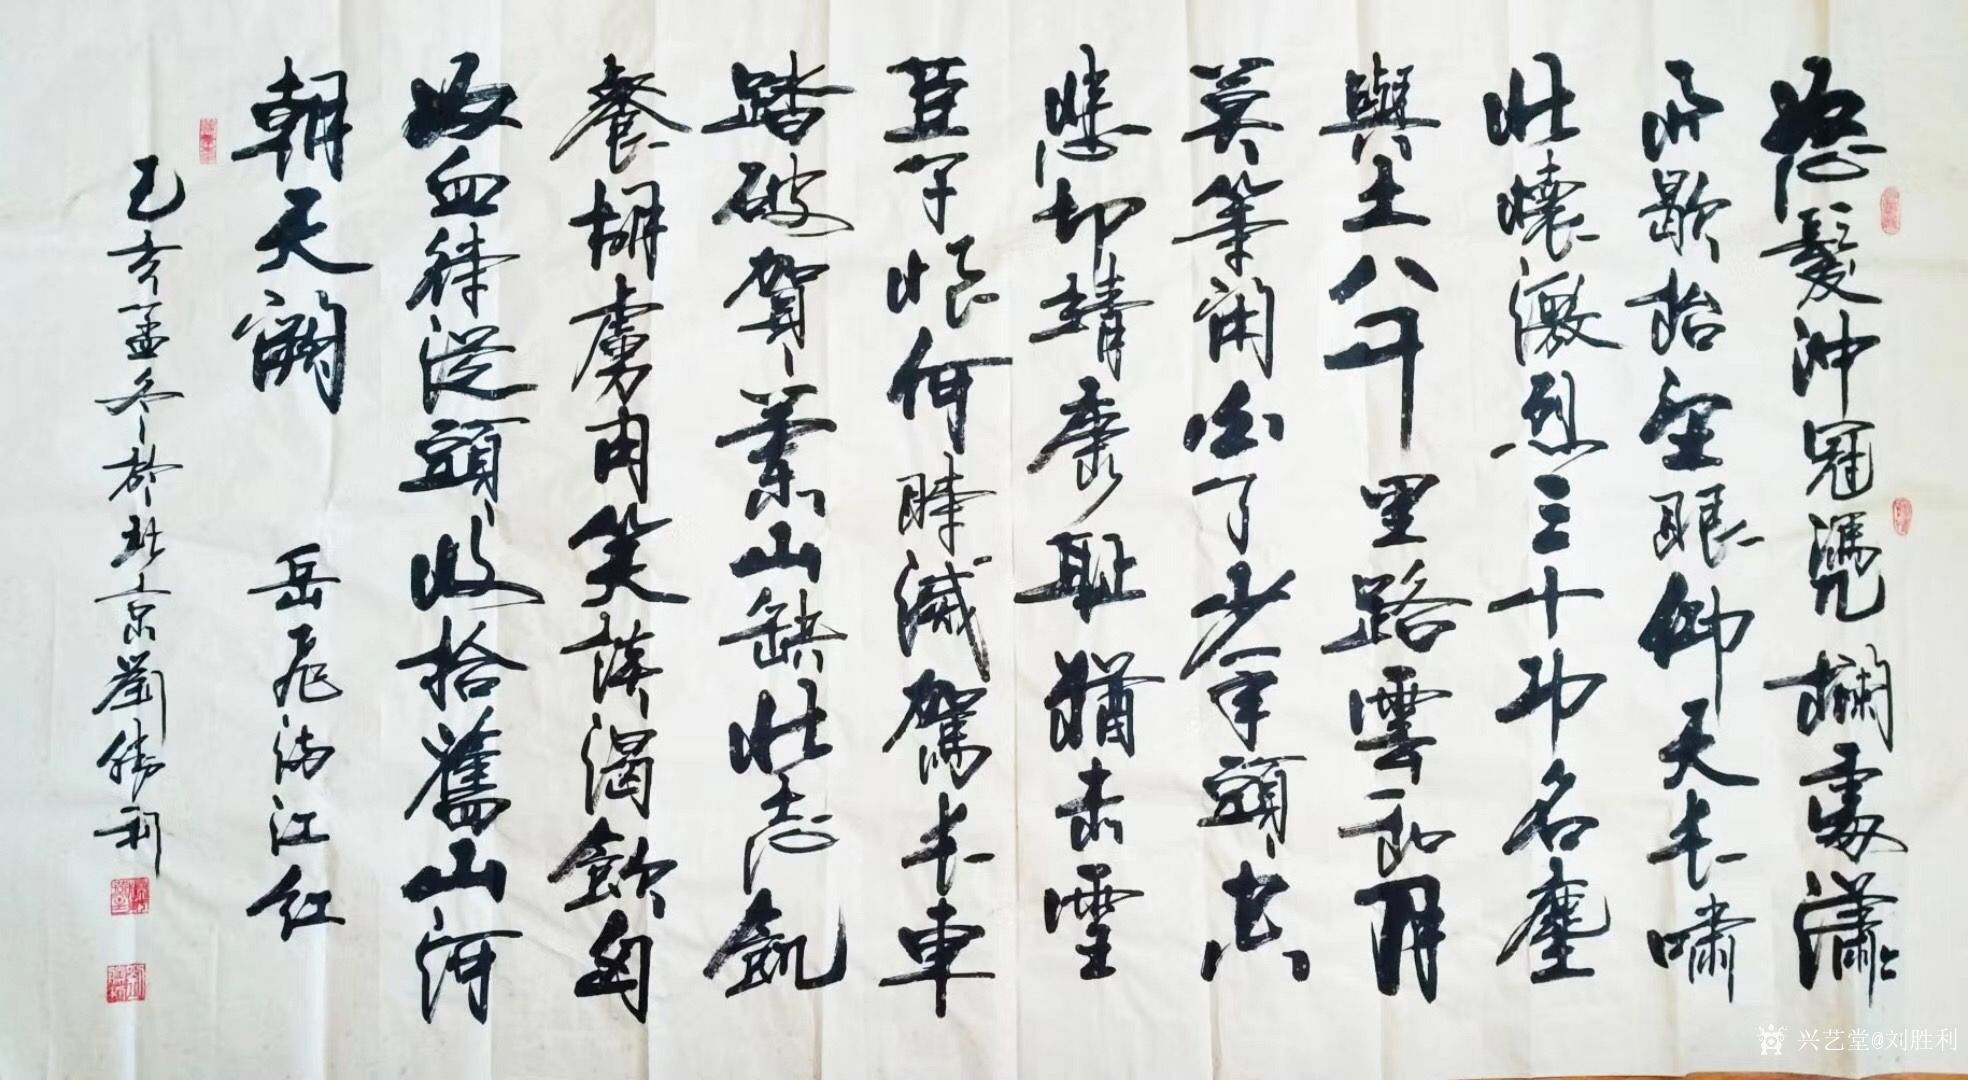 怒髮沖冠憑欄處瀟〻
雨歇抬望眼仰天長嘯
壯懷激烈三十功名塵
與土八千里路雲和月
莫等閑白了少年頭空
悲切靖康恥猶未雪
臣子恨何時滅駕長車
踏破賀蘭山缺壯志飢
餐胡虜肉笑談渴飲匈
奴血待從頭收拾舊山河
朝天闕 岳飛滿江红
己亥孟冬於北京劉勝利
兴艺堂@刘胜利